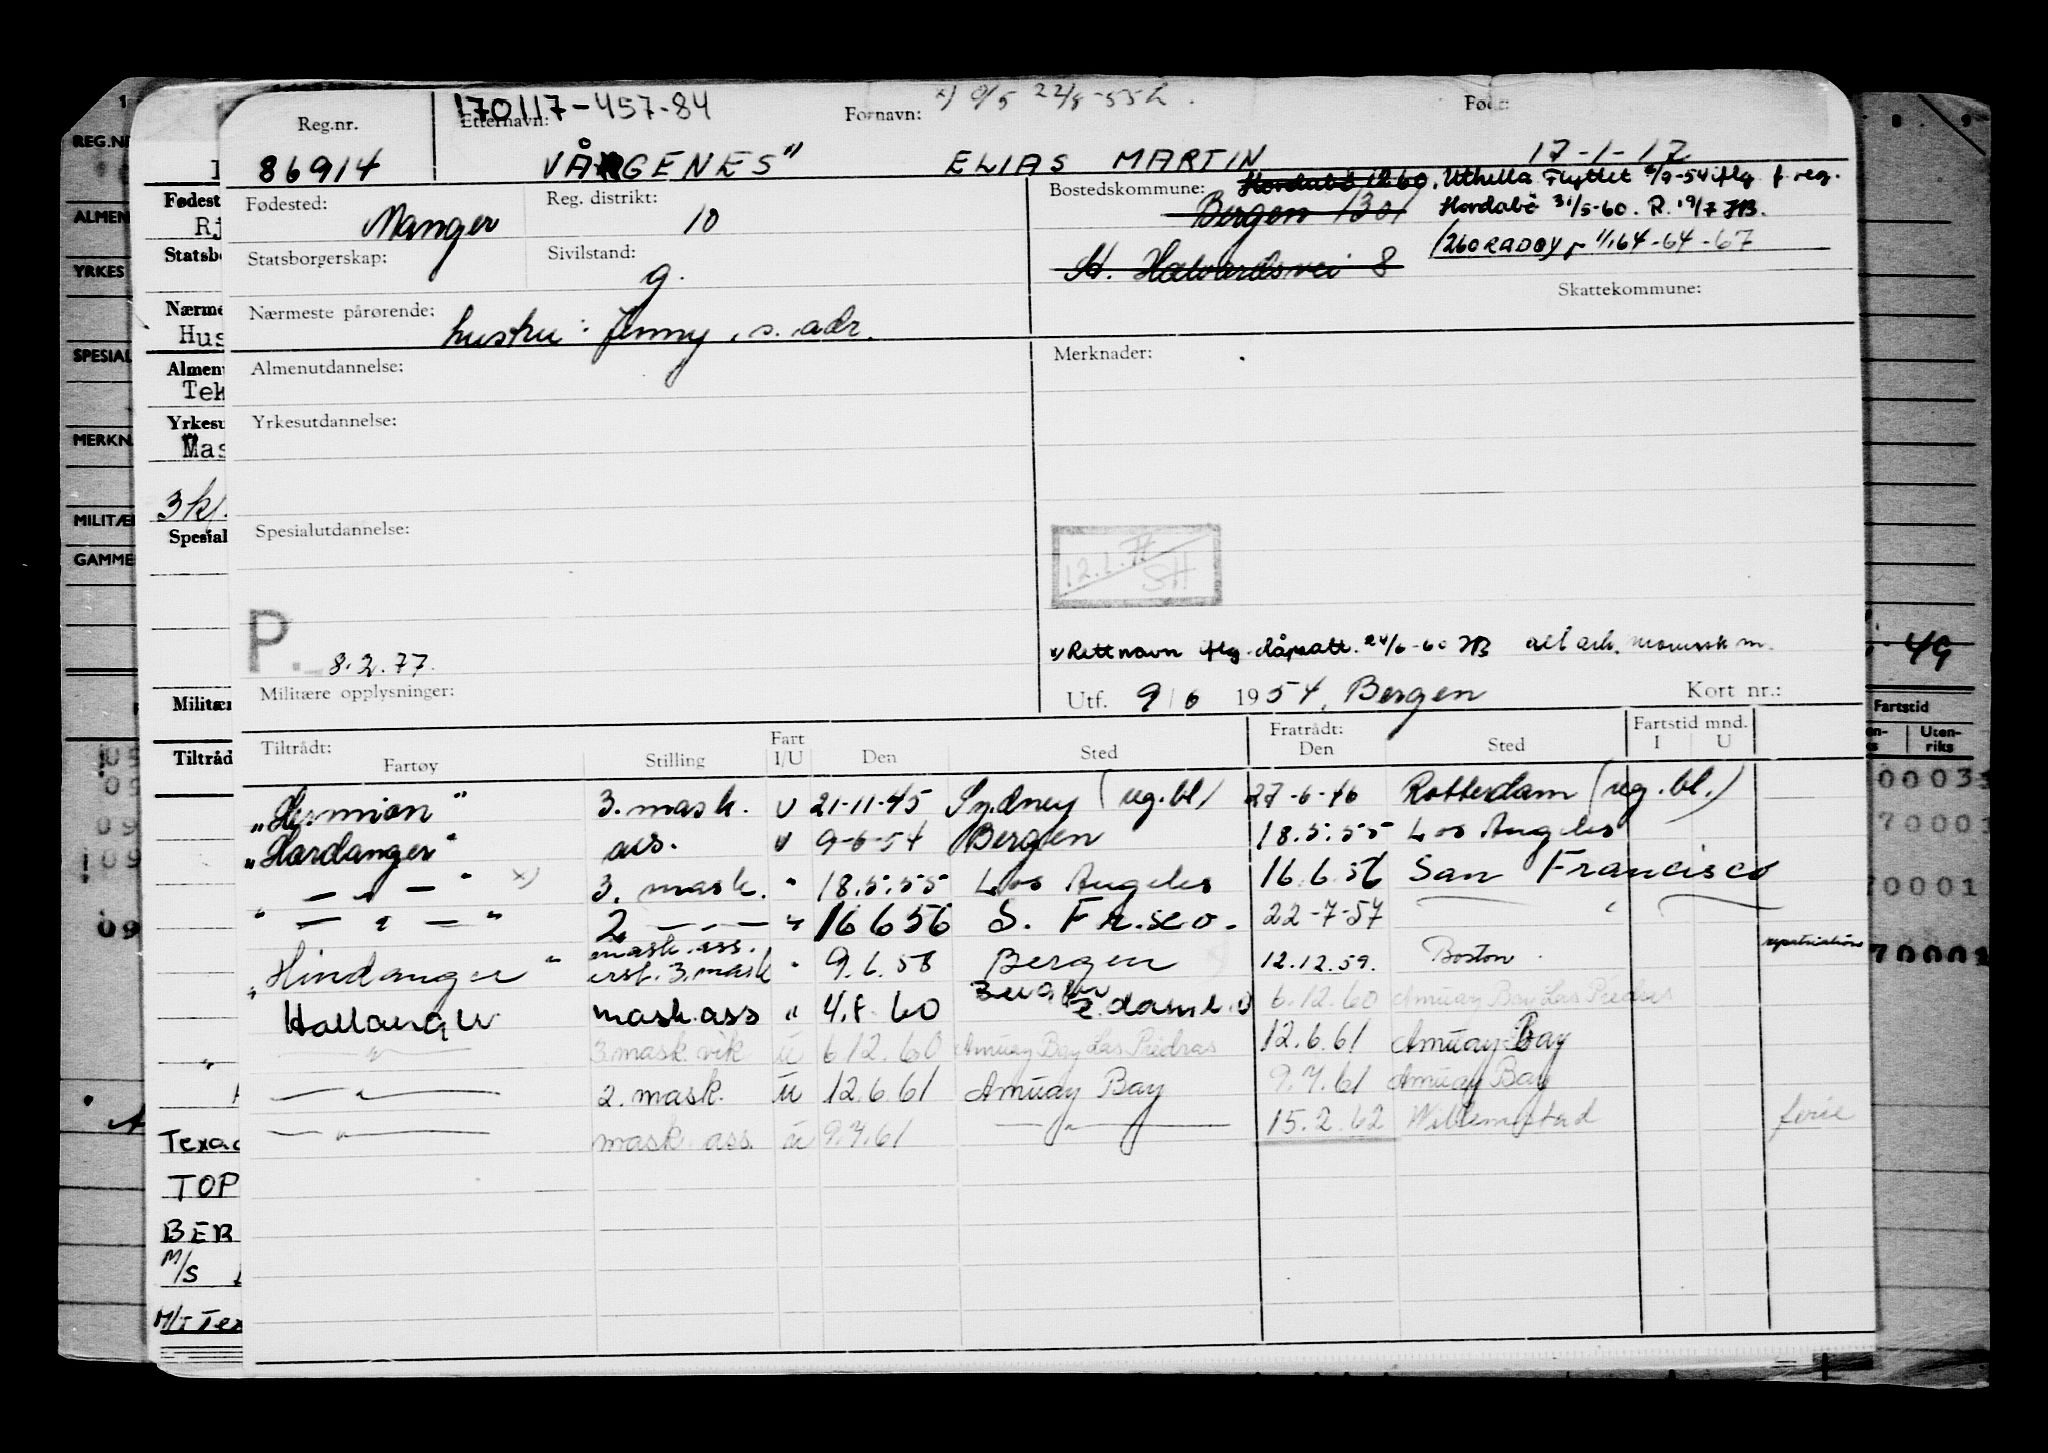 170117-457-84
Reg.nr. Etternavn: Fornavn: 22/8-55 Født:
86914 VÅGENES" ELIAS MARTIN 17-1-17
Fødested: Reg. distrikt: Bostedskommune: Uthella Flyttet 6/9-54 iflg f. reg.
Manger 10 Bergen 1301 Hordabö 31/5-60. R. 19/7 HB.
Statsborgerskap: Sivilstand: 1260 RADØY 1/1 64-64-67
g. St. Halvardsvei 8
Skattekommune:
Nærmeste pårørende:
hustru: Jenny, s. adr.
Almenutdannelse: Merknader:
Yrkesutdannelse:
Spesialutdannelse:
12.1.77
SH
P. 8.2.77
x) Rett navn iflg. dåpsatt. 24/6-60 HB
Militære opplysninger: Utf. 9/6 1954, Bergen Kort nr.:
Tiltrådt: Fratrådt: Fartstid mnd.
Fartøy Stilling Fart I/U Den Sted Den Sted I U
"Hermion" 3. mask. U 21-11-45 Sydney (reg.bl) 27-6-46 Rotterdam (reg.bl.)
"Hardanger" ass. U 9-6-54 Bergen 18.5.55 Los Angeles
— " — x) 3. mask. " 18.5.55 Los Angeles 16.6.56 San Francisco
" — " — " 2. — " — " 16 6 56 S. Fr.sco. 22-7-57 — " —
mask. ass.
"Hindanger" erst. 3. mask " 9.6.58 Bergen 12.12.59. Boston repatriation
Hallanger mask.ass " 4.8.60 6.12.60 Amuay Bay Las Piedras
— " — 3. mask vik ū 6.12.60 Amuay Bay Las Piedras 12.6.61 Amuay Bay
— " — 2. mask. ū 12.6.61 Amuay Bay 9.7.61 Amuay Bay
— " — mask ass. ū 9.7.61 — " — 15.2.62 Willemstad ferie
REG.NR
ALMEN
YRKES
SPESIAL
MERKN
MILITÆ
GAMME
Fødest
Rj
Statsbo
Nærme
Hus
Almenu
Tek
Yrkesu
Mas
3 kl.
Spesial
Militær
Tiltråd
Texac
TOP
BER
M/S
M/T Tex
49
Fartstid
Uten-
riks